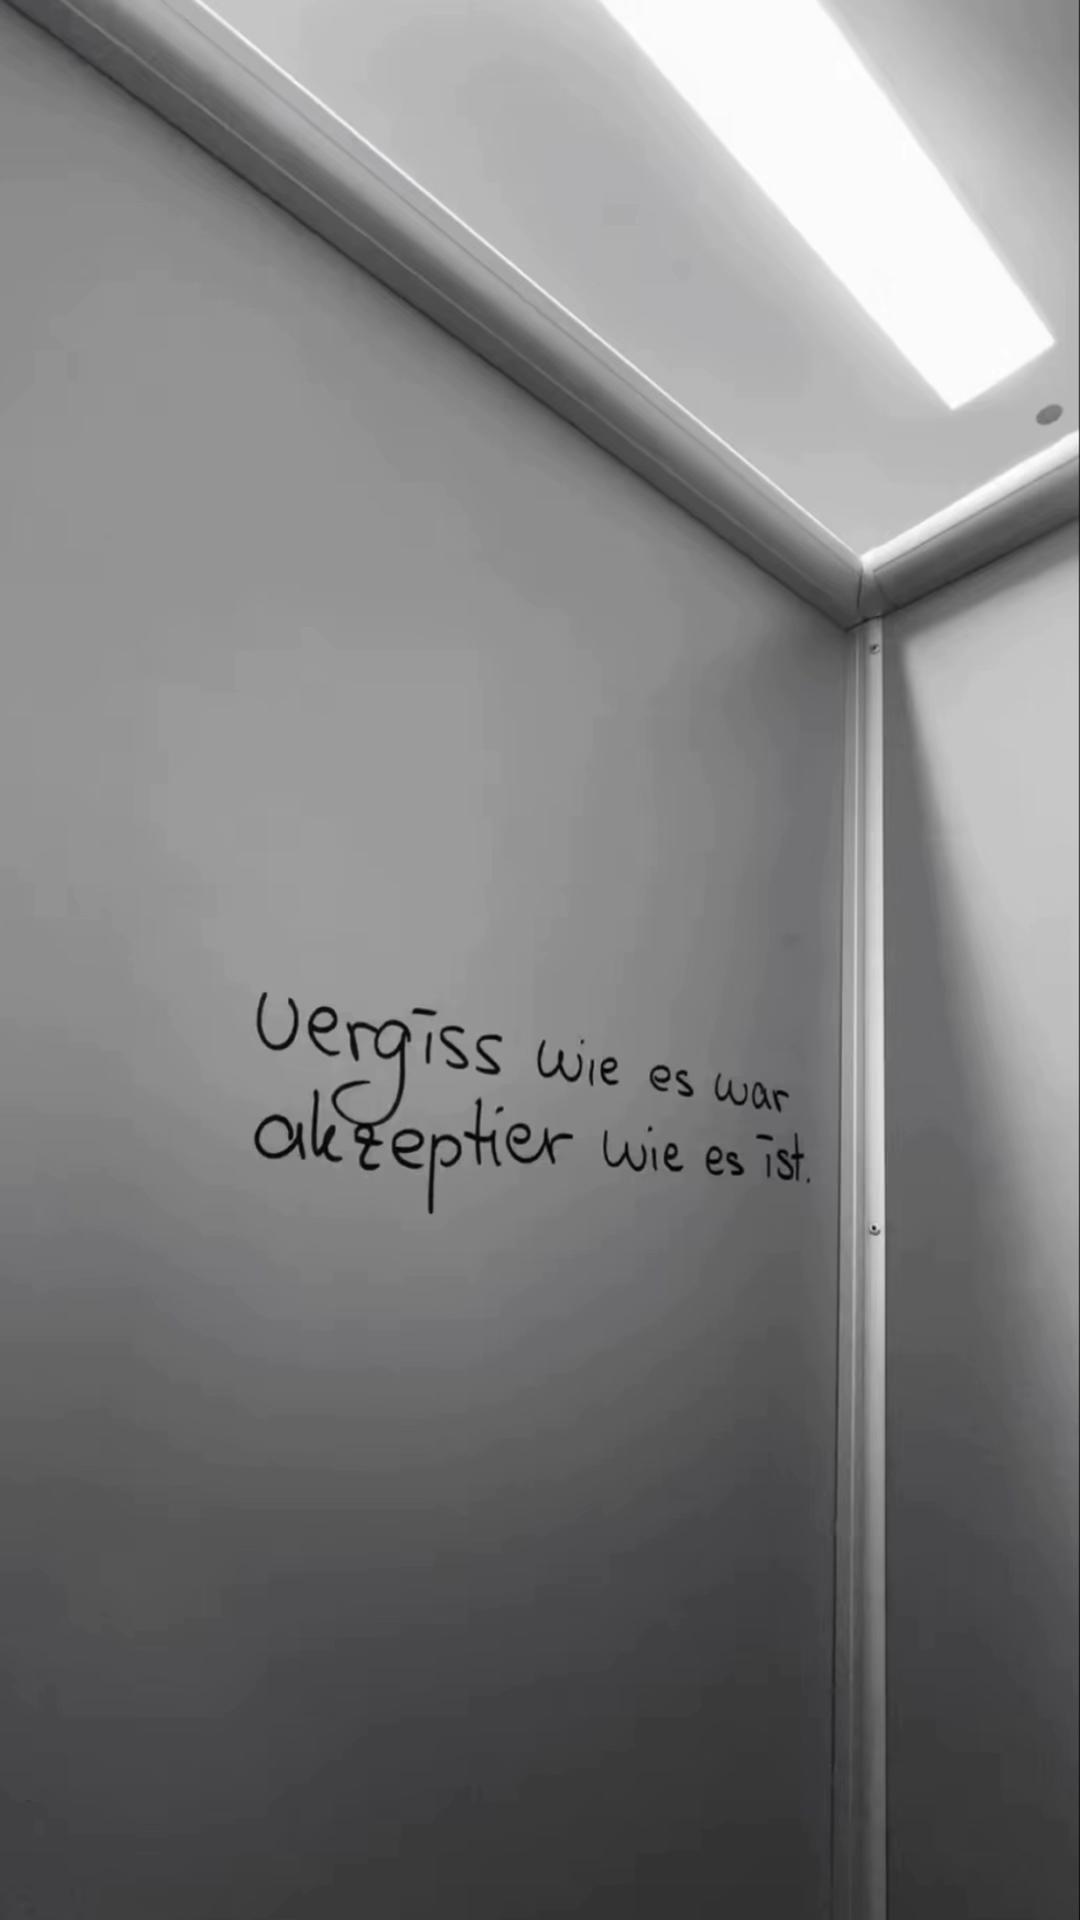 Vergiss wie es war
akzeptier wie es ist.